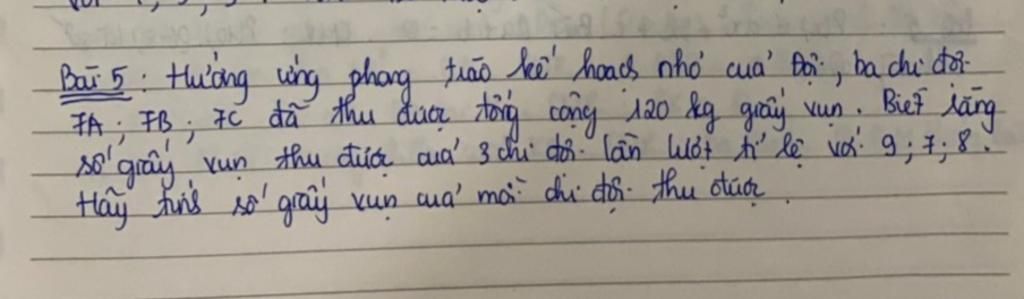 Bài 5 : Hưởng ứng phong trào kế hoạch nhỏ của Đội, ba chi đội
7A ; 7B ; 7C đã thu được tổng cộng 120 kg giấy vụn. Biết rằng
số giấy vụn thu được của 3 chi đội lần lượt tỉ lệ với 9 ; 7 ; 8 .
Hãy tính số giấy vụn của mỗi chi đội thu được .